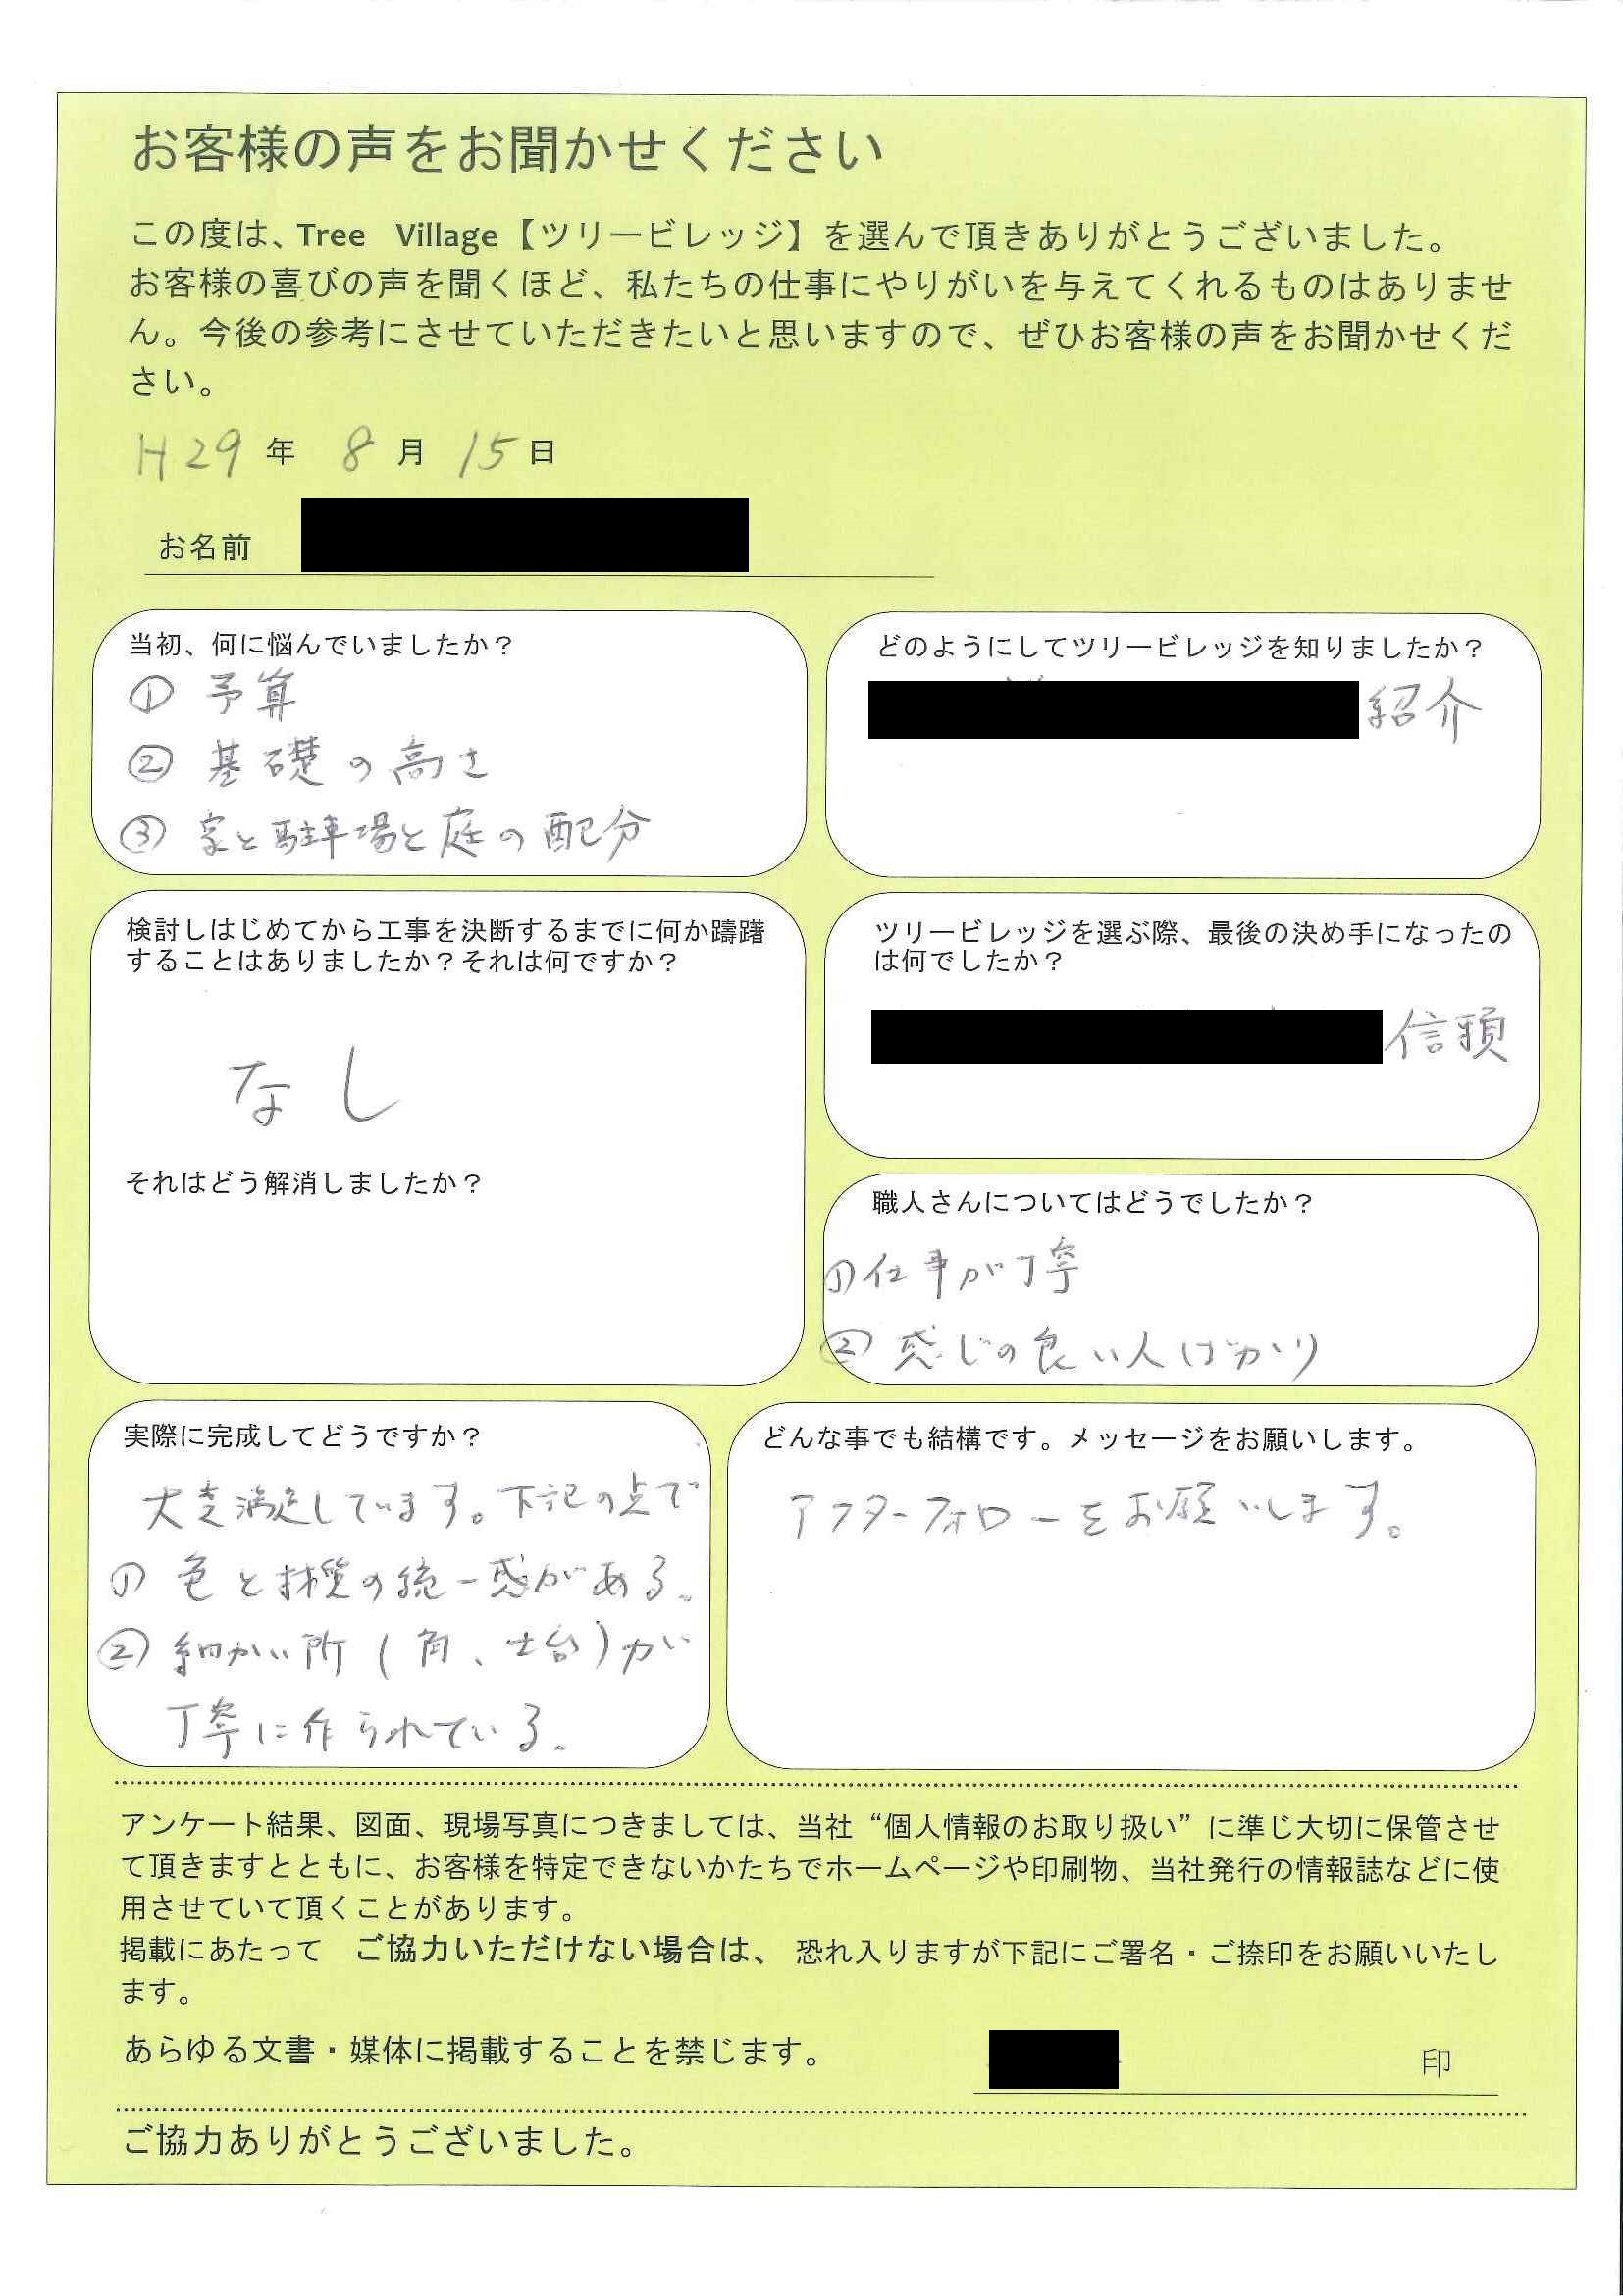 お客様の声をお聞かせください
この度は、Tree Village【ツリービレッジ】を選んで頂きありがとうございました。
お客様の喜びの声を聞くほど、私たちの仕事にやりがいを与えてくれるものはありませ
ん。今後の参考にさせていただきたいと思いますので、ぜひお客様の声をお聞かせくだ
さい。
H29年 8月 15日
お名前
当初、何に悩んでいましたか？
① 予算
② 基礎の高さ
③ 家と駐車場と庭の配分
どのようにしてツリービレッジを知りましたか？
紹介
検討しはじめてから工事を決断するまでに何か躊躇
することはありましたか？それは何ですか？
なし
それはどう解消しましたか？
ツリービレッジを選ぶ際、最後の決め手になったの
は何でしたか？
信頼
職人さんについてはどうでしたか？
①仕事が丁寧
② 感じの良い人ばかり
実際に完成してどうですか？
大変満足しています。下記の点で
① 色と材質の統一感がある。
② 細かい所（角、土台）が
丁寧に作られている。
どんな事でも結構です。メッセージをお願いします。
アフターフォローをお願いします。
アンケート結果、図面、現場写真につきましては、当社“個人情報のお取り扱い”に準じ大切に保管させ
て頂きますとともに、お客様を特定できないかたちでホームページや印刷物、当社発行の情報誌などに使
用させていて頂くことがあります。
掲載にあたって ご協力いただけない場合は、 恐れ入りますが下記にご署名・ご捺印をお願いいたし
ます。
あらゆる文書・媒体に掲載することを禁じます。 印
ご協力ありがとうございました。